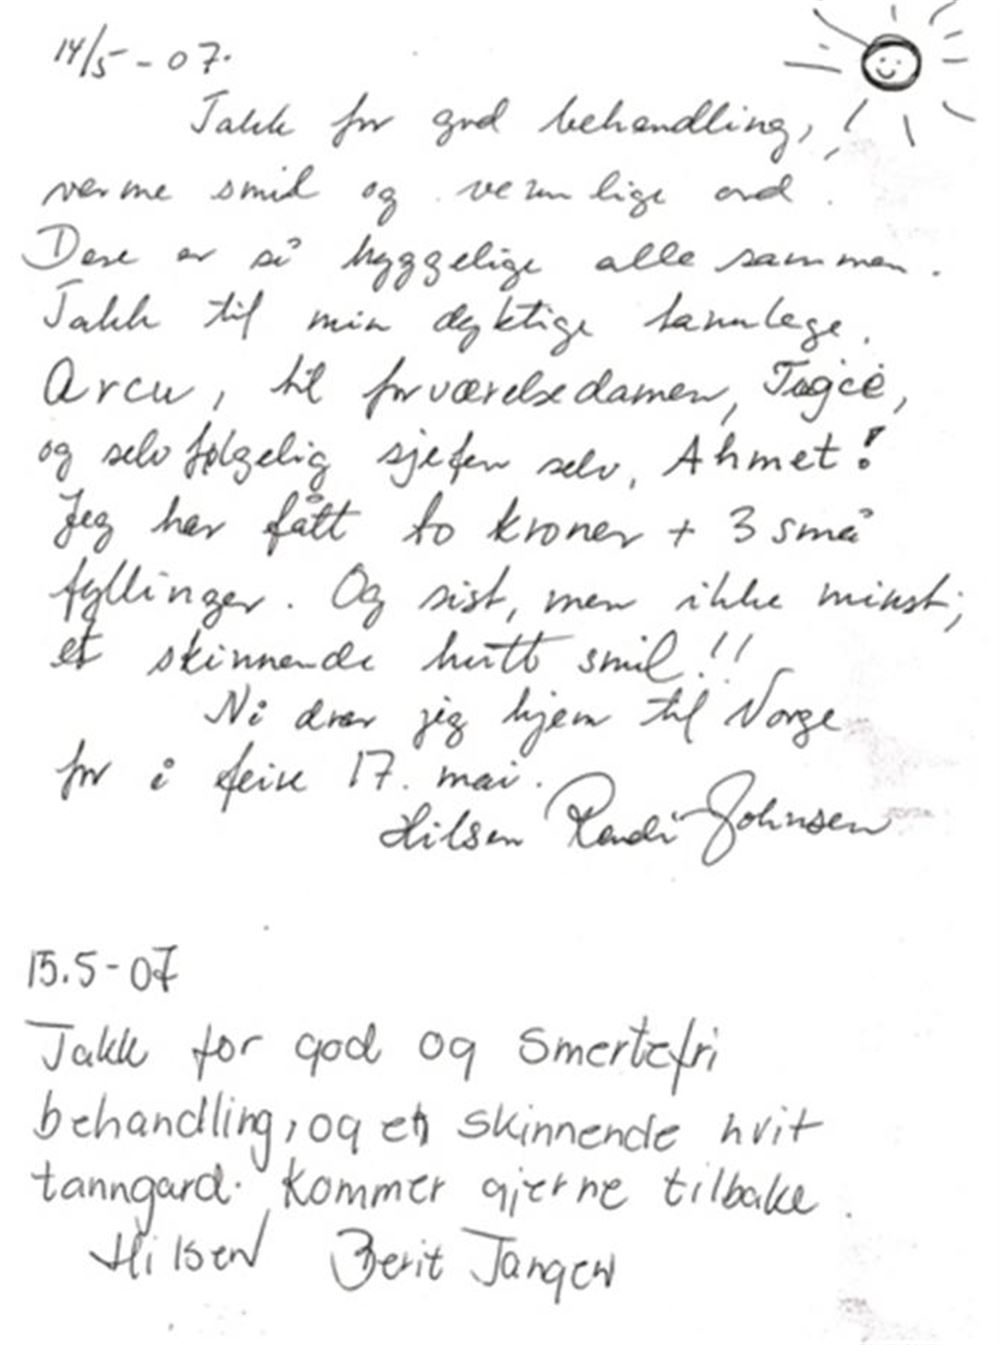 14/5-07.
Takk for god behandling,
varme smil og vennlige ord.
Dere er så hyggelige alle sammen.
Takk til min dyktige tannlege,
Arcu, til forværelsedamen, Tugce,
og selvfølgelig sjefen selv, Ahmet!
Jeg har fått to kroner + 3 små
fyllinger. Og sist, men ikke minst;
et skinnende hvitt smil!!
Nå drar jeg hjem til Norge
for å feire 17. mai.
Hilsen Randi Johnsen
15.5-07
Takk for god og smertefri
behandling, og en skinnende hvit
tanngard. Kommer gjerne tilbake.
Hilsen Berit Tangen